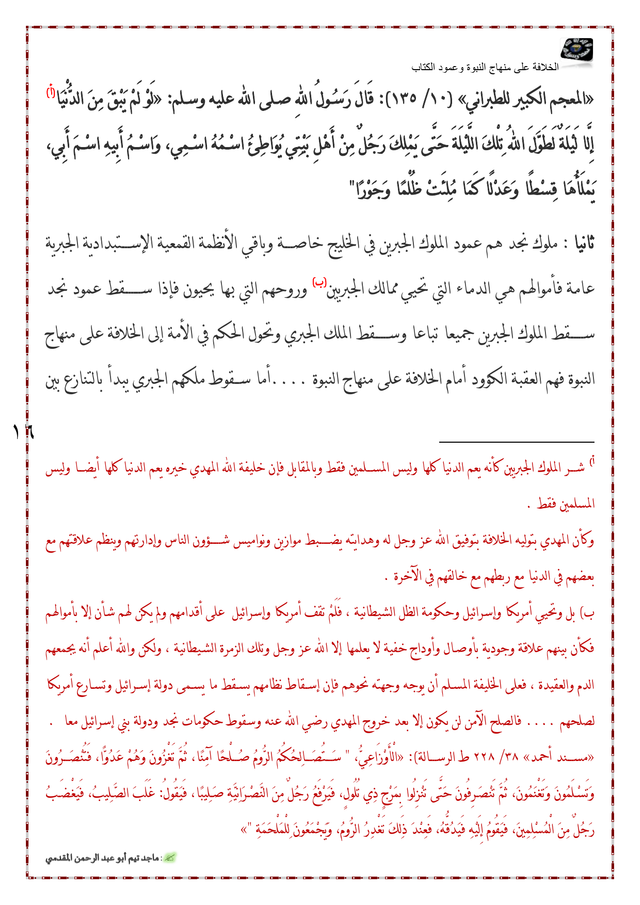 الخلافة على منهاج النبوة وعمود الكتاب
«المعجم الكبير للطبراني» (١٠/ ١٣٥): قَالَ رَسُولُ اللهِ صلى الله عليه وسلم: «لَوْ لَمْ يَبْقَ مِنَ الدُّنْيَا(أ)
إِلَّا لَيْلَةٌ لَطَوَّلَ اللهُ تِلْكَ اللَّيْلَةَ حَتَّى يَمْلِكَ رَجُلٌ مِنْ أَهْلِ بَيْتِي يُوَاطِئُ اسْمُهُ اسْمِي، وَاسْمُ أَبِيهِ اسْمَ أَبِي،
يَمْلَأُهَا قِسْطًا وَعَدْلًا كَمَا مُلِئَتْ ظُلْمًا وَجَوْرًا"
ثانيا : ملوك نجد هم عمود الملوك الجبرين في الخليج خاصة وباقي الأنظمة القمعية الإستبدادية الجبرية
عامة فأموالهم هي الدماء التي تحيي ممالك الجبريين(ب) وروحهم التي بها يحيون فإذا سقط عمود نجد
سقط الملوك الجبرين جميعا تباعا وسقط الملك الجبري وتحول الحكم في الأمة إلى الخلافة على منهاج
النبوة فهم العقبة الكؤود أمام الخلافة على منهاج النبوة . . . .أما سقوط ملكهم الجبري يبدأ بالتنازع بين
١٦
أ) شر الملوك الجبريين كأنه يعم الدنيا كلها وليس المسلمين فقط وبالمقابل فإن خليفة الله المهدي خيره يعم الدنيا كلها أيضا وليس
المسلمين فقط .
وكأن المهدي بتوليه الخلافة بتوفيق الله عز وجل له وهدايته يضبط موازين ونواميس شؤون الناس وإدارتهم وينظم علاقتهم مع
بعضهم في الدنيا مع ربطهم مع خالقهم في الآخرة .
ب) بل وتحيي أمريكا وإسرائيل وحكومة الظل الشيطانية ، فَلَمْ تقف أمريكا وإسرائيل على أقدامهم ولم يكن لهم شأن إلا بأموالهم
فكأن بينهم علاقة وجودية بأوصال وأوداج خفية لا يعلمها إلا الله عز وجل وتلك الزمرة الشيطانية ، ولكن والله أعلم أنه يجمعهم
الدم والعقيدة ، فعلى الخليفة المسلم أن يوجه وجهته نحوهم فإن إسقاط نظامهم يسقط ما يسمى دولة إسرائيل وتسارع أمريكا
لصلحهم . . . . فالصلح الآمن لن يكون إلا بعد خروج المهدي رضي الله عنه وسقوط حكومات نجد ودولة بني إسرائيل معا .
«مسند أحمد» ٣٨/ ٢٢٨ ط الرسالة): «الْأَوْزَاعِيُّ، " سَتُصَالِحُكُمُ الرُّومُ صُلْحًا آمِنًا، ثُمَّ تَغْزُونَ وَهُمْ عَدُوًّا، فَتُنْصَرُونَ
وَتَسْلَمُونَ وَتَغْنَمُونَ، ثُمَّ تَنْصَرِفُونَ حَتَّى تَنْزِلُوا بِمَرْجٍ ذِي تُلُولٍ، فَيَرْفَعُ رَجُلٌ مِنَ النَّصْرَانِيَّةِ صَلِيبًا، فَيَقُولُ: غَلَبَ الصَّلِيبُ، فَيَغْضَبُ
رَجُلٌ مِنَ الْمُسْلِمِينَ، فَيَقُومُ إِلَيْهِ فَيَدُقُّهُ، فَعِنْدَ ذَلِكَ تَغْدِرُ الرُّومُ، وَيَجْمَعُونَ لِلْمَلْحَمَةِ "»
: ماجد تيم أبو عبد الرحمن المقدسي